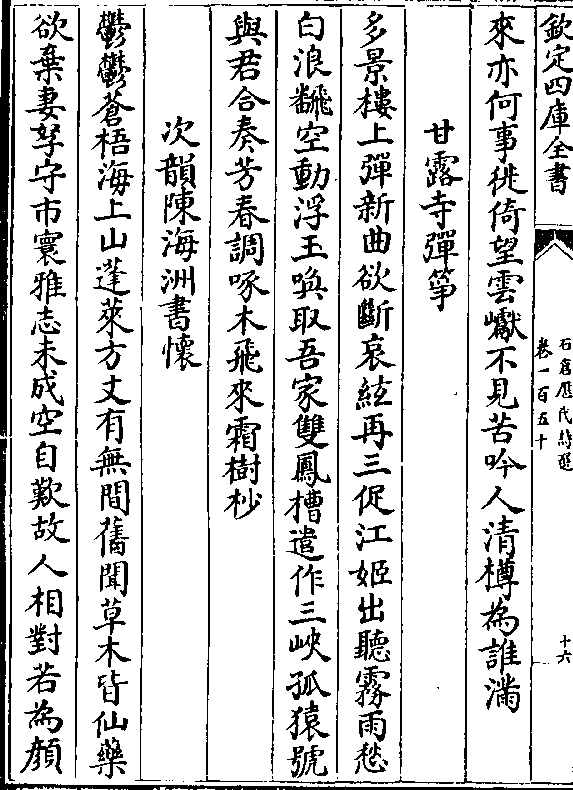 欽定四庫全書
石倉歷代詩選
卷一百五十
十六
來亦何事徙倚望雲巘不見苦吟人清樽為誰滿
甘露寺彈箏
多景樓上彈新曲欲斷哀絃再三促江姬出聽霧雨愁
白浪飜空動浮玉喚取吾家雙鳳槽遣作三峽孤猿號
與君合奏芳春調啄木飛來霜樹杪
次韻陳海洲書懷
鬱鬱蒼梧海上山蓬萊方丈有無間舊聞草木皆仙藥
欲棄妻孥守市寰雅志未成空自歎故人相對若為顔